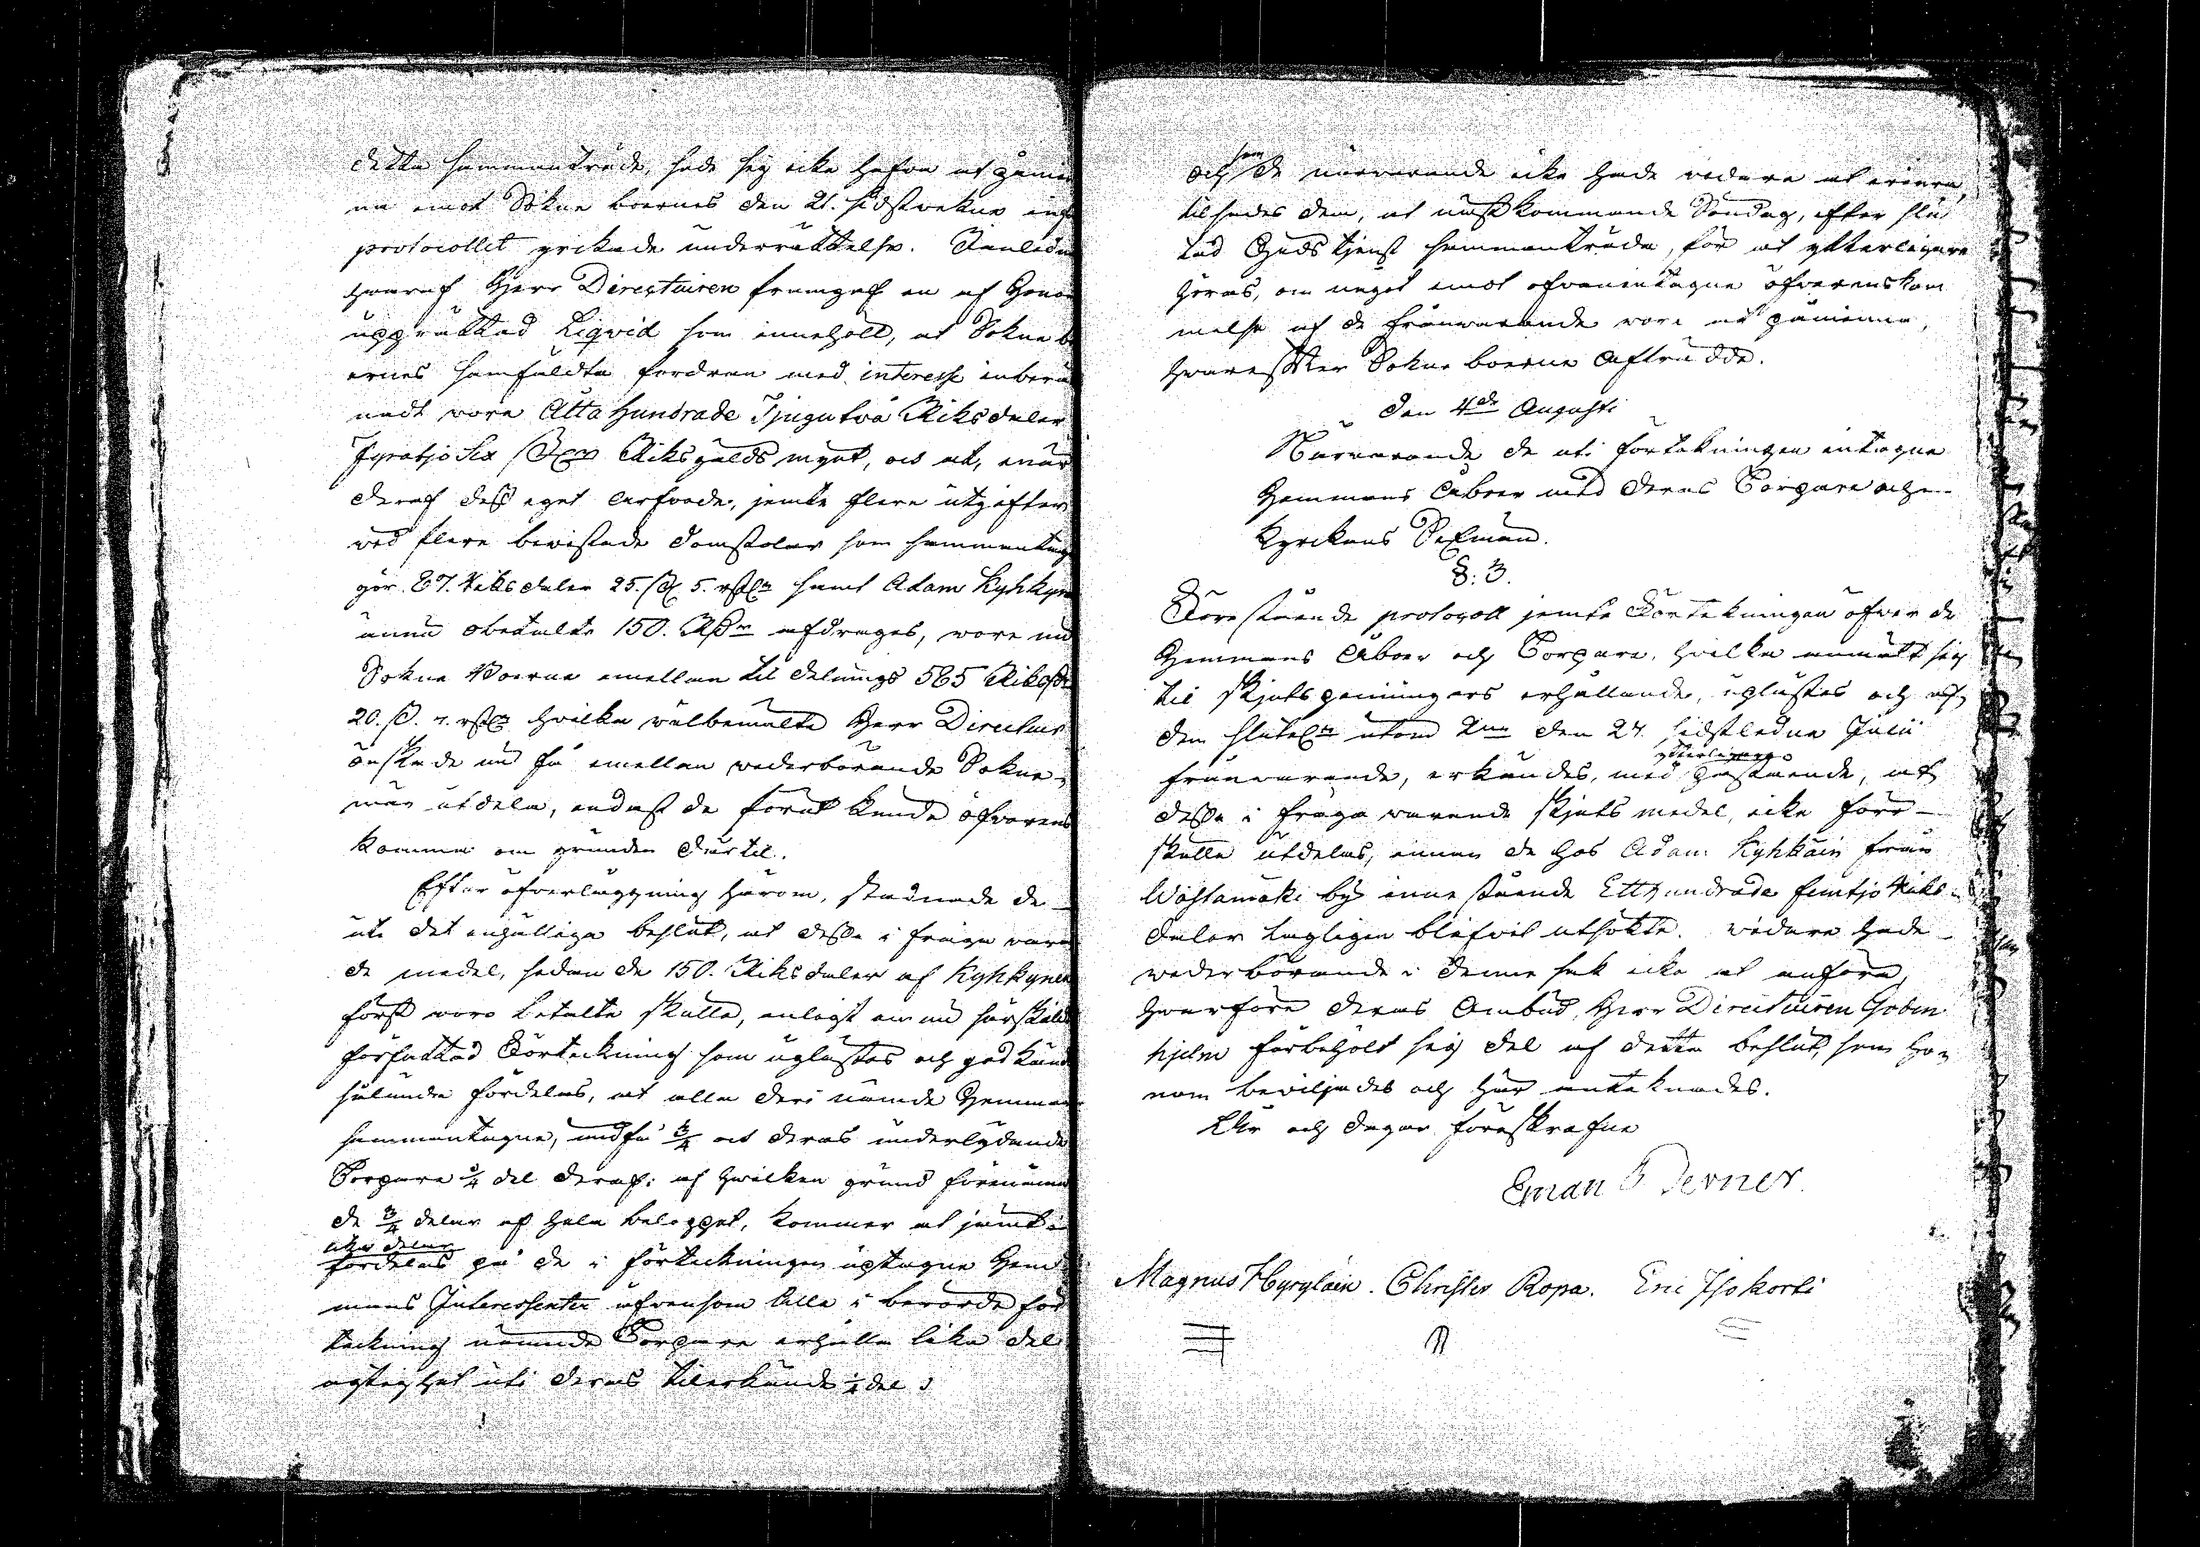 detta sammanträde, sade sig icke hafva at påmin
na emot Sokne boernes den 21. sidstvekne
protocollet yrkade underrättelse. Anledn
hvaraf Herr Directeuren framgaf en af Honom
upprättad Liqvid som innehöll, at Sokne b
ernes samfäldta fordran med interesse inberä
nadt vore Åtta hundrade Tjugutvå Riksdaler
Fyratjo Sex Riksgälds mynt, och at, enär
deraf dess eget arfvode, jemte flere utgifter
ved flere bevistade domstolar som sammantag
gör 87. Riksdaler 25. ß. 5. samt Adam Kyhkyn
ännu obetalte 150. Rdr afdrages, vore nu
Sokne Boerne emellan til delnings 585 Riksd
20. ß. 7. hvilka välbemälte Herr Directeur
önskade nu få emellan vederbörande Sokne
män utdela, endast de förut kunde öfverens
komma om grunden dertil.
Efter öfverläggning härom, stadnade de
uti det enhälliga beslut, at desse i fråga vara
de medel, sedan de 150. Riksdaler af Kyhkynen
först voro betalte skulle, enligt en nu särskildt
författad Förteckning som uplästes och godkänd
sålunda fördelas, at alla deri nämde Hemman
sammantagne, undfå 3/4 at deras underlydande
Torpare 1/4 del deraf: af hvilken grund förenämn
de 3/4 delar af hela beloppet, kommer at jemt i
lika delar
fördelas på de i förteckningen uptagne Hem
mans Interessenter äfvensom Alla i berörde för
teckning nämnde Torpare erhålla lika del
agtighet uti deras tilerkände 1/4 del
som
och de närvarande icke hade vidare at erinra,
tilsades dem, at nästkommande Söndag, efter slu
tad Gudstjenst sammanträda, för at ytterligare
höras, om något emot ofvanintagne öfverenskom
melse af de frånvarande vore at påminna,
hvarefter Sokne boerne Afträdde.
Den 4de Augusti
Närvarande de uti förtekningen intagne
Hemmans Åboer med deras Torpare och
Kyrckans Sexmän.
§: 3.
Förestående protocoll jemte Förtekningen öfver de
Hemmans Åboer och Torpare, hvilka anmält sig
til skjuts penningars erhållande, uplästes och af
dem utom den 27. sidstledne Julii
ytterligare
frånvarande, erkändes, med påstående, at
desse i fråga varande skjuts medel, icke förr
skulle utdelas, innan de hos Adam Kyhkäin från
Wästamäki by innestående Ett hundrade femtjo Riks
daler lagligen blifvit utsökte. vidare hade
vederbörande i denne sak icke at anföra,
hvarföre deras Ombud, Herr Directeuren Goben
hjelm förbehölt sig del af detta beslut, som ho
nom beviljades och här anteknades.
Åhr och dagar föreskrefne
Eman Berner.
Magnus Hyryläin. Christer Ropa. Eric Isokorti